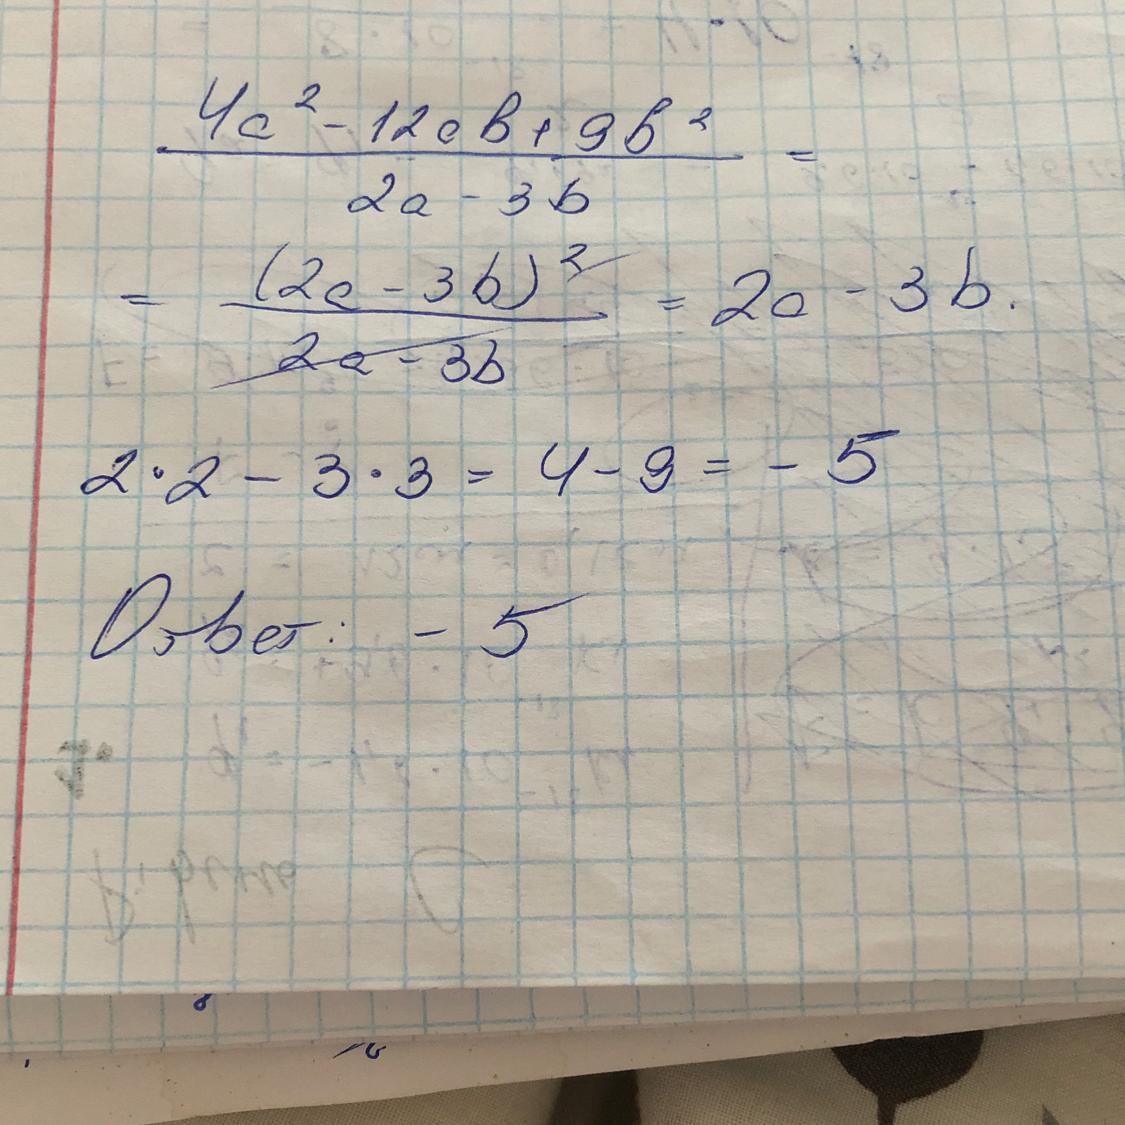 4a² - 12ab + 9b²
2a - 3b
=
= (2a - 3b)²
2a - 3b
= 2a - 3b.
2·2 - 3·3 = 4 - 9 = - 5
Ответ: - 5